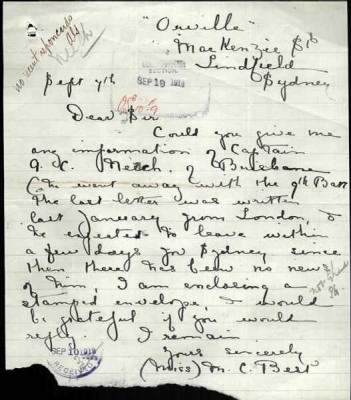 "Orville"
MacKenzie St
Lindfield
Sydney
Sept 7th
SECTION
SEP 10 1919
Dear Sir
Could you give me
any information of Captain
of Brisbane
(He went away with the 9th Batt
The last letter was written
last January from London, &
he expected to leave within
a few days for Sydney since
then there has been no news
of him, I am enclosing a
stamped envelope, & would
be grateful if you would
reply
I remain
Yours sincerely
(Miss) M. C. Best
SEP 10 1919
RECEIVED